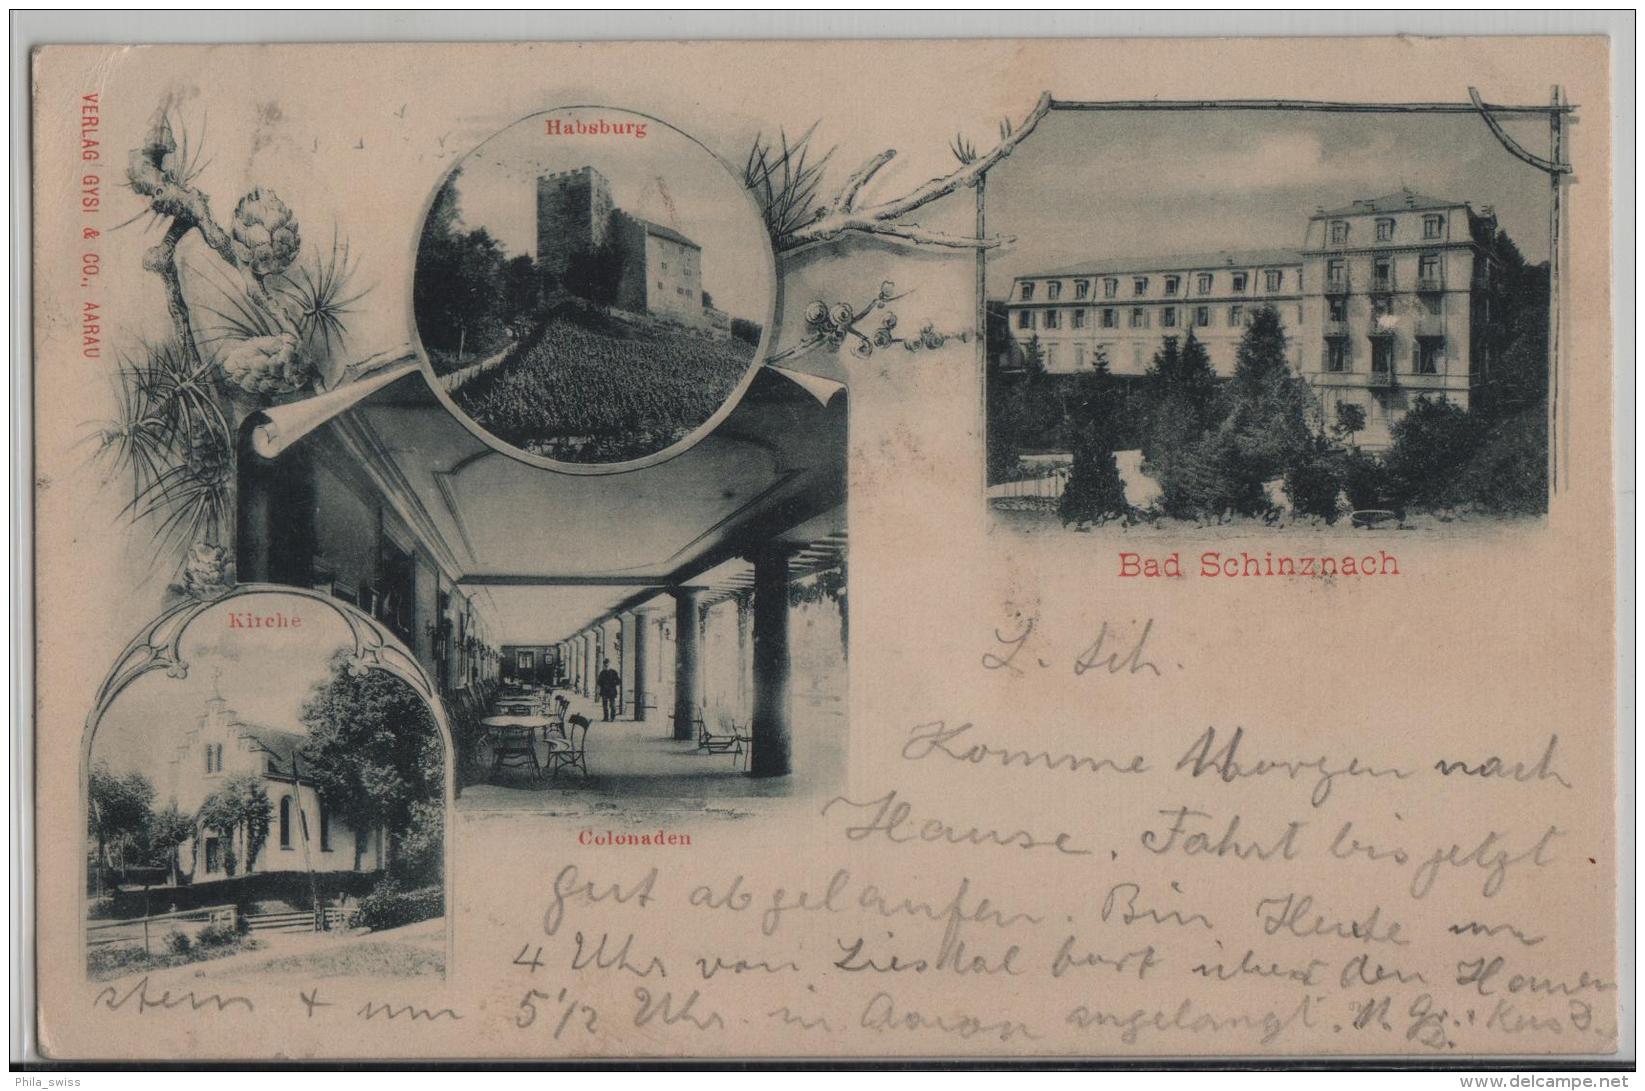 VERLAG GYSI & CO., AARAU
Habsburg
Bad Schinznach
Kirche
Colonaden
L.
Komme Morgen nach
Hause. Fahrt bis jetzt
gut abgelaufen. Bin Heute um
4 Uhr von Liestal fort über den Hauen
stein + um 5 1/2 Uhr in Aarau angelangt. M. Gr. + Kuss
Phila_swiss
www.delcampe.net